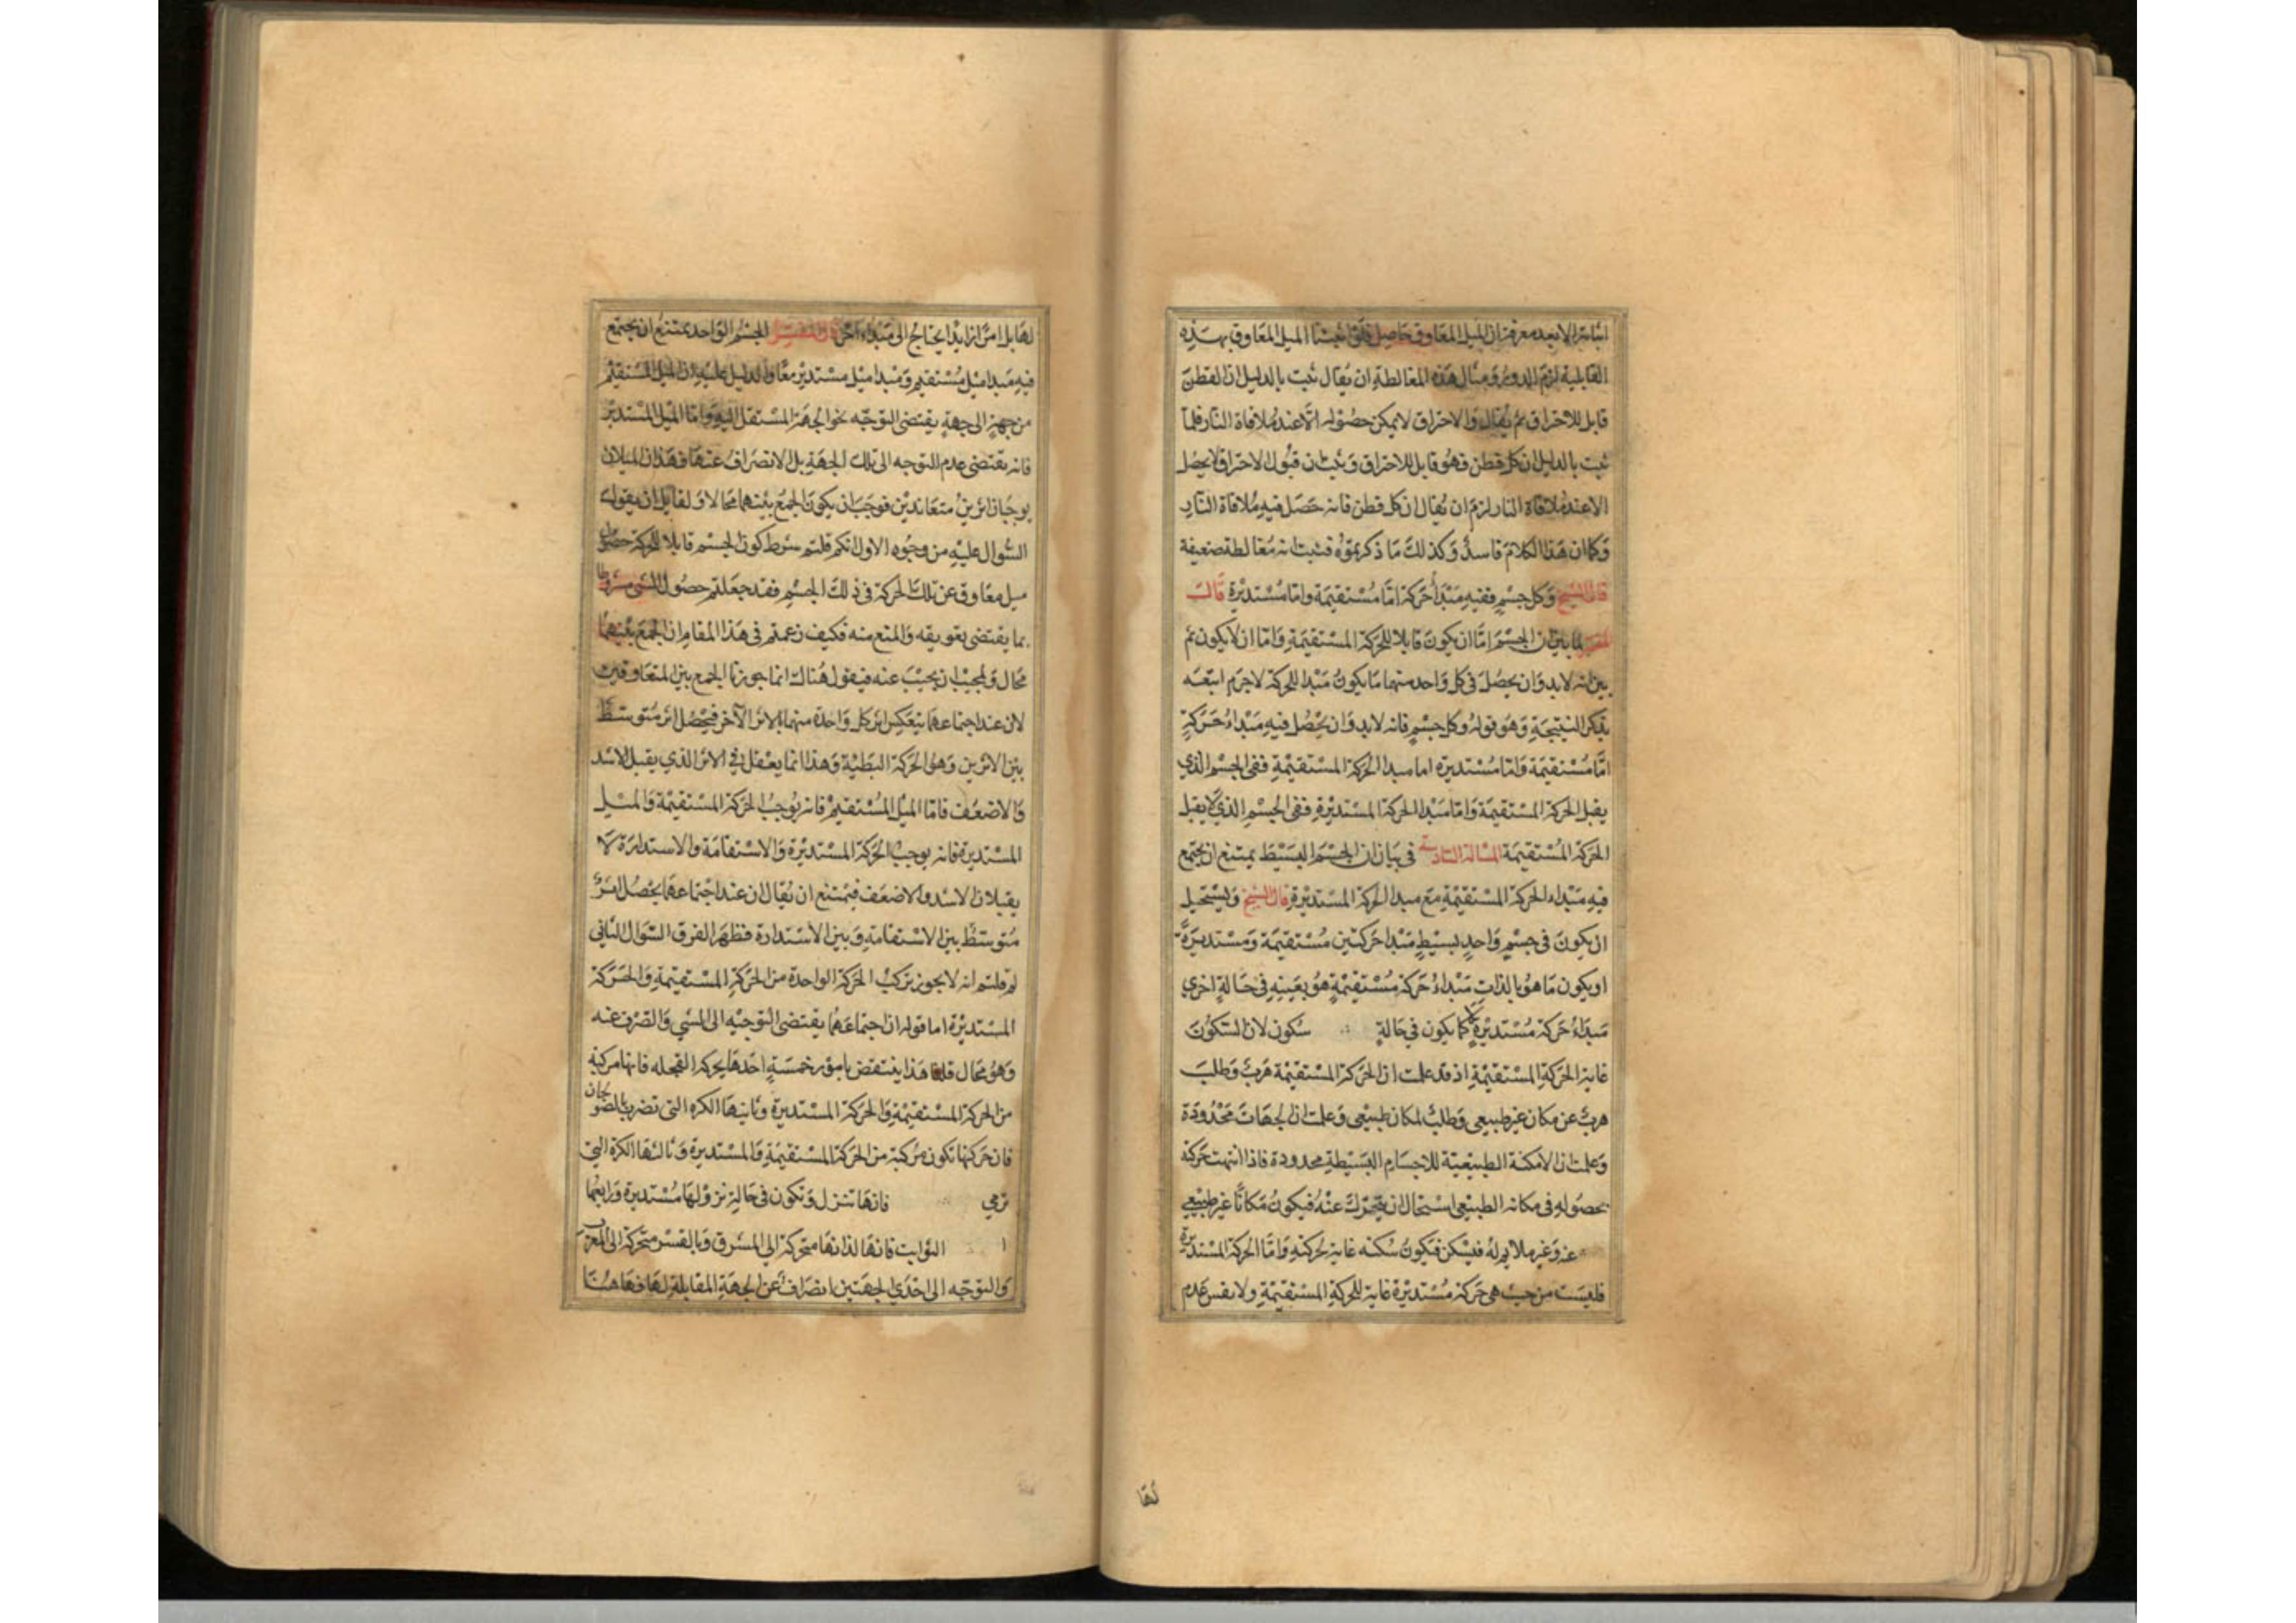 اثباته الا بعد معرفة ان الميل المعاوق حاصل فلو اثبتنا الميل المعاوق بهذه
القابلية لزم الدور ومثال هذه المغالطة ان يقال ثبت بالدليل ان القطن
قابل للاحتراق ثم يقال والاحتراق لا يمكن حصوله الا عند ملاقاة النار فلما
ثبت بالدليل ان كل قطن فهو قابل للاحتراق وثبت ان قبول الاحتراق لا يحصل
الا عند ملاقاة النار لزم ان يقال ان كل قطن فانه حصل فيه ملاقاة النار
وكما ان هذا الكلام فاسد وكذلك ما ذكرتموه فثبت انه مغالطة ضعيفة
قال الشيخ وكل جسم ففيه مبدأ حركة اما مستقيمة واما مستديرة قال
المفسر لما بين ان الجسم اما ان يكون قابلا للحركة المستقيمة واما ان لا يكون ثم
بين انه لا بد وان يحصل في كل واحد منهما ما يكون مبدا للحركة لا جرم اتبعه
بذكر النتيجة وهو قوله وكل جسم فانه لا بد وان يحصل فيه مبداء حركة
اما مستقيمة واما مستديرة اما مبدا الحركة المستقيمة ففي الجسم الذي
يقبل الحركة المستقيمة واما مبدا الحركة المستديرة ففي الجسم الذي لا يقبل
الحركة المستقيمة المسالة السادسة في بيان ان الجسم البسيط يمتنع ان يجتمع
فيه مبداء الحركة المستقيمة مع مبدا الحركة المستديرة قال الشيخ ويستحيل
ان يكون في جسم واحد بسيط مبدا حركتين مستقيمة ومستديرة
او يكون ما هو بالذات مبداء حركة مستقيمة هو بعينه في حالة اخري
مبداء حركة مستديرة كما يكون في حالة سكون لان السكون
غاية الحركة المستقيمة اذ قد علمت ان الحركة المستقيمة هرب وطلب
هرب عن مكان غير طبيعي وطلب لمكان طبيعي وعلمت ان الجهات محدودة
وعلمت ان الامكنة الطبيعية للاجسام البسيطة محدودة فاذا انتهت حركته
بحصوله في مكانه الطبيعي استحال ان يتحرك عنه فيكون مكانا غير طبيعي
عنه وغير ملايم له فيسكن فيكون سكنه غاية لحركته واما الحركة المستديرة
فليست من حيث هي حركة مستديرة غاية للحركة المستقيمة ولا نفس عدم
لها
لها بل امرا زايدا يحتاج الى مبداء اخر قال المفسر الجسم الواحد يمتنع ان يجتمع
فيه مبدا ميل مستقيم ومبدا ميل مستدير معا والدليل عليه ان الميل المستقيم
من جهة الى جهة يقتضي التوجه نحو الجهة المستقل اليه واما الميل المستدير
فانه يقتضي عدم التوجه الى تلك الجهة بل الانصراف عنها فهذان الميلان
يوجبان اثرين متعاندين فوجب ان يكون الجمع بينهما محالا ولقايل ان يقول
السوال عليه من وجوه الاول انكم قلتم شرط كون الجسم قابلا للحركة حصول
ميل معاوق عن تلك الحركة في ذلك الجسم فقد جعلتم حصول الشي مشروطا
بما يقتضي تعويقه والمنع منه فكيف زعمتم في هذا المقام ان الجمع بينهما
محال ولمجيب ان يجيب عنه فيقول هناك انما جوزنا الجمع بين المتعاوقين
لان عند اجتماعهما ينعكس اثر كل واحدة منهما بالاثر الآخر فيحصل اثر متوسط
بين الاثرين وهو الحركة البطية وهذا انما يعقل في الاثر الذي يقبل الاشد
والاضعف فاما الميل المستقيم فانه يوجب الحركة المستقيمة والميل
المستدير فانه يوجب الحركة المستديرة والاستقامة والاستدارة لا
يقبلان الاشد والاضعف فيمتنع ان يقال ان عند اجتماعهما يحصل امر
متوسط بين الاستقامة وبين الاستدارة فظهر الفرق السوال الثاني
لم قلتم انه لا يجوز تركب الحركة الواحدة من الحركة المستقيمة والحركة
المستديرة اما قوله ان اجتماعهما يقتضي التوجيه الى الشي والصرف عنه
وهو محال قلنا هذا ينتقض بامور خمسة احدها بحركة العجله فانها مركبة
من الحركة المستقيمة والحركة المستديرة وثانيها الكره التي تضرب بالصولجان
فان حركتها تكون مركبة من الحركة المستقيمة والمستديرة وثالثها الكرة التي
ترمي فانها تنزل وتكون في حالة نزولها مستديرة ورابعها
ا الثوابت فانها لذاتها متحركة الي المشرق وبالقسر متحركة الى المغرب
والتوجه الى احدي الجهتين انصراف عن الجهة المقابلة لها فهاهنا